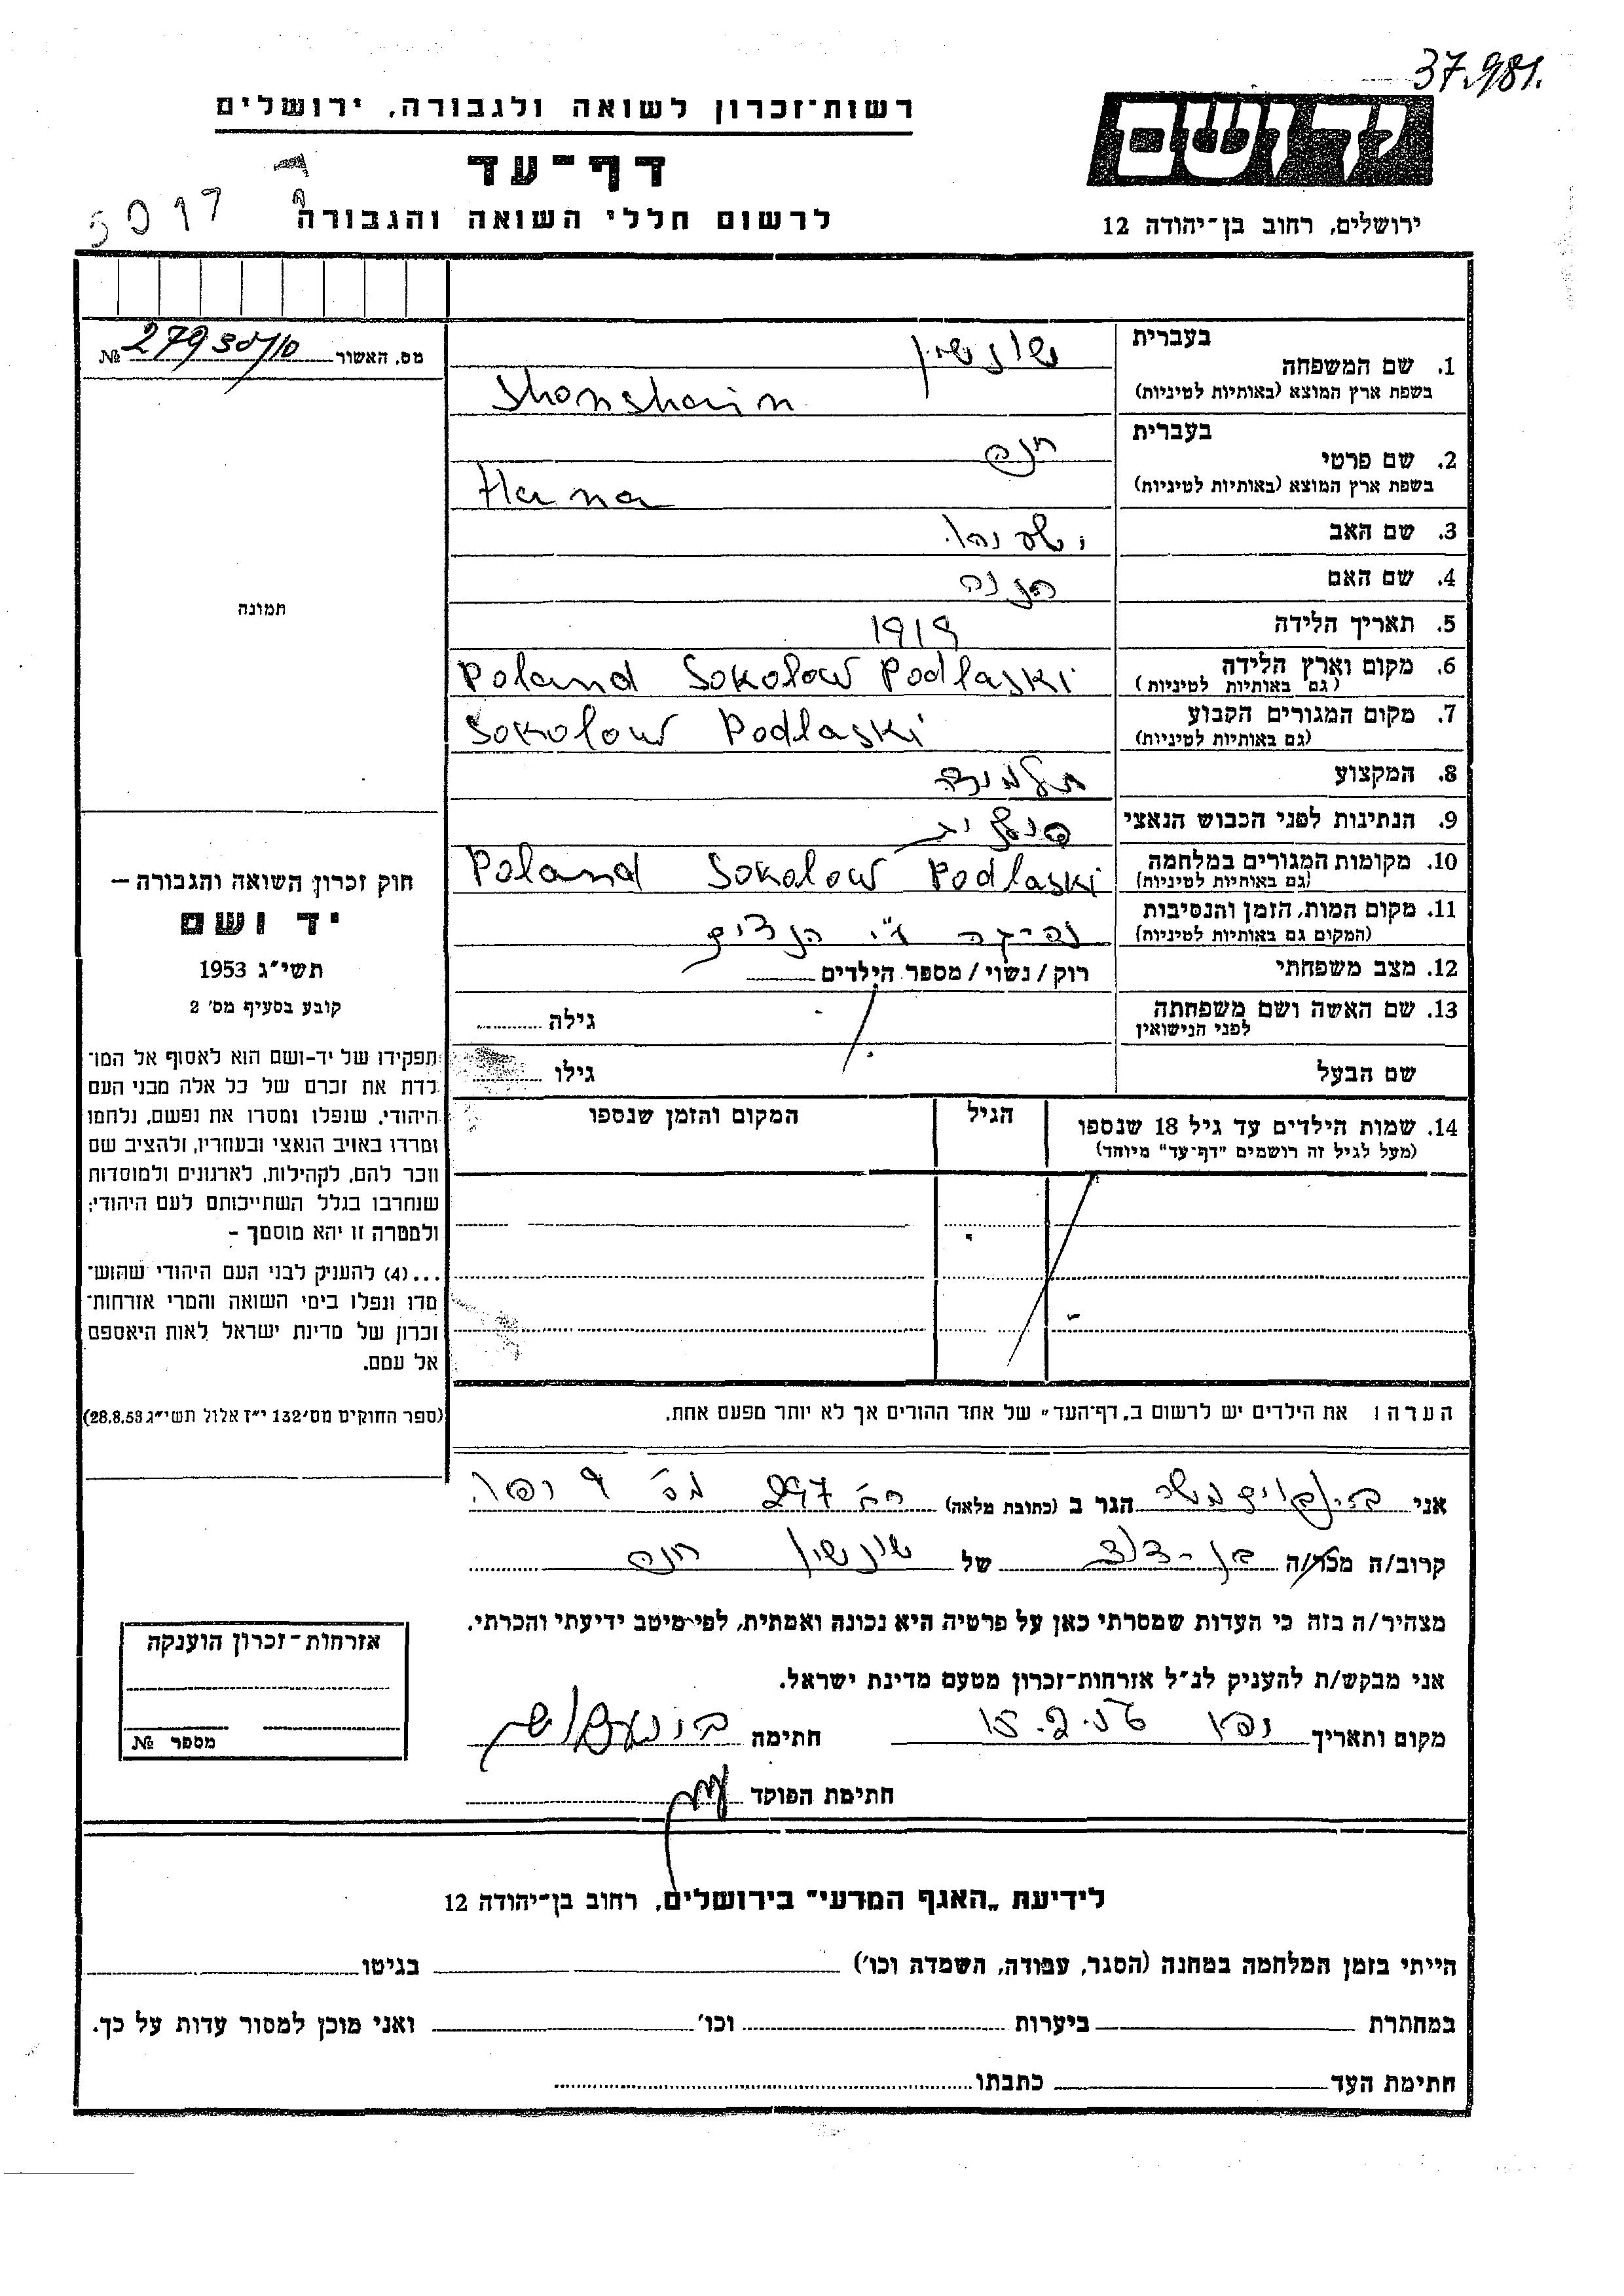 37.981.
רשות־זכרון לשואה ולגבורה, ירושלים
יד ושם
דף־עד
לרשום חללי השואה והגבורה
ירושלים, רחוב בן־יהודה 12
מס. האשור № 27930/10
1. שם המשפחה
בעברית שונשיין
בשפת ארץ המוצא (באותיות לטיניות) Shonshain
2. שם פרטי
בעברית חנה
בשפת ארץ המוצא (באותיות לטיניות) Hana
3. שם האב ישעיהו
4. שם האם
5. תאריך הלידה 1919
6. מקום וארץ הלידה (גם באותיות לטיניות) Poland Sokolow Podlaski
7. מקום המגורים הקבוע (גם באותיות לטיניות) Sokolow Podlaski
8. המקצוע תלמידה
9. הנתינות לפני הכבוש הנאצי פולנית
10. מקומות המגורים במלחמה (גם באותיות לטיניות) Poland Sokolow Podlaski
11. מקום המות, הזמן והנסיבות (המקום גם באותיות לטיניות) נהרגה ע"י הנאצים
12. מצב משפחתי רוק / נשוי / מספר הילדים
13. שם האשה ושם משפחתה לפני הנישואין גילה
שם הבעל גילו
14. שמות הילדים עד גיל 18 שנספו (מעל לגיל זה רושמים "דף־עד" מיוחד)
הגיל
המקום והזמן שנספו
הערה: את הילדים יש לרשום ב„דף־העד" של אחד ההורים אך לא יותר מפעם אחת.
תמונה
חוק זכרון השואה והגבורה –
יד ושם
תשי"ג 1953
קובע בסעיף מס' 2
תפקידו של יד-ושם הוא לאסוף אל המו־
לדת את זכרם של כל אלה מבני העם
היהודי, שנפלו ומסרו את נפשם, נלחמו
ומרדו באויב הנאצי ובעוזריו, ולהציב שם
וזכר להם, לקהילות, לארגונים ולמוסדות
שנחרבו בגלל השתייכותם לעם היהודי;
ולמטרה זו יהא מוסמך –
...(4) להעניק לבני העם היהודי שהוש־
מדו ונפלו בימי השואה והמרי אזרחות־
זכרון של מדינת ישראל לאות היאספם
אל עמם.
(ספר החוקים מס' 132 י"ז אלול תשי"ג 28.8.53)
אני הגר ב (כתובת מלאה) 297
קרוב/ה מכר/ה של שונשיין חנה
מצהיר/ה בזה כי העדות שמסרתי כאן על פרטיה היא נכונה ואמתית, לפי מיטב ידיעתי והכרתי.
אני מבקש/ת להעניק לנ"ל אזרחות־זכרון מטעם מדינת ישראל.
מקום ותאריך 15.2.56 חתימה
חתימת הפוקד
אזרחות־זכרון הוענקה
מספר №
לידיעת „האגף המדעי" בירושלים, רחוב בן־יהודה 12
הייתי בזמן המלחמה במחנה (הסגר, עבודה, השמדה וכו') בגיטו
במחתרת ביערות וכו' ואני מוכן למסור עדות על כך.
חתימת העד כתבתו